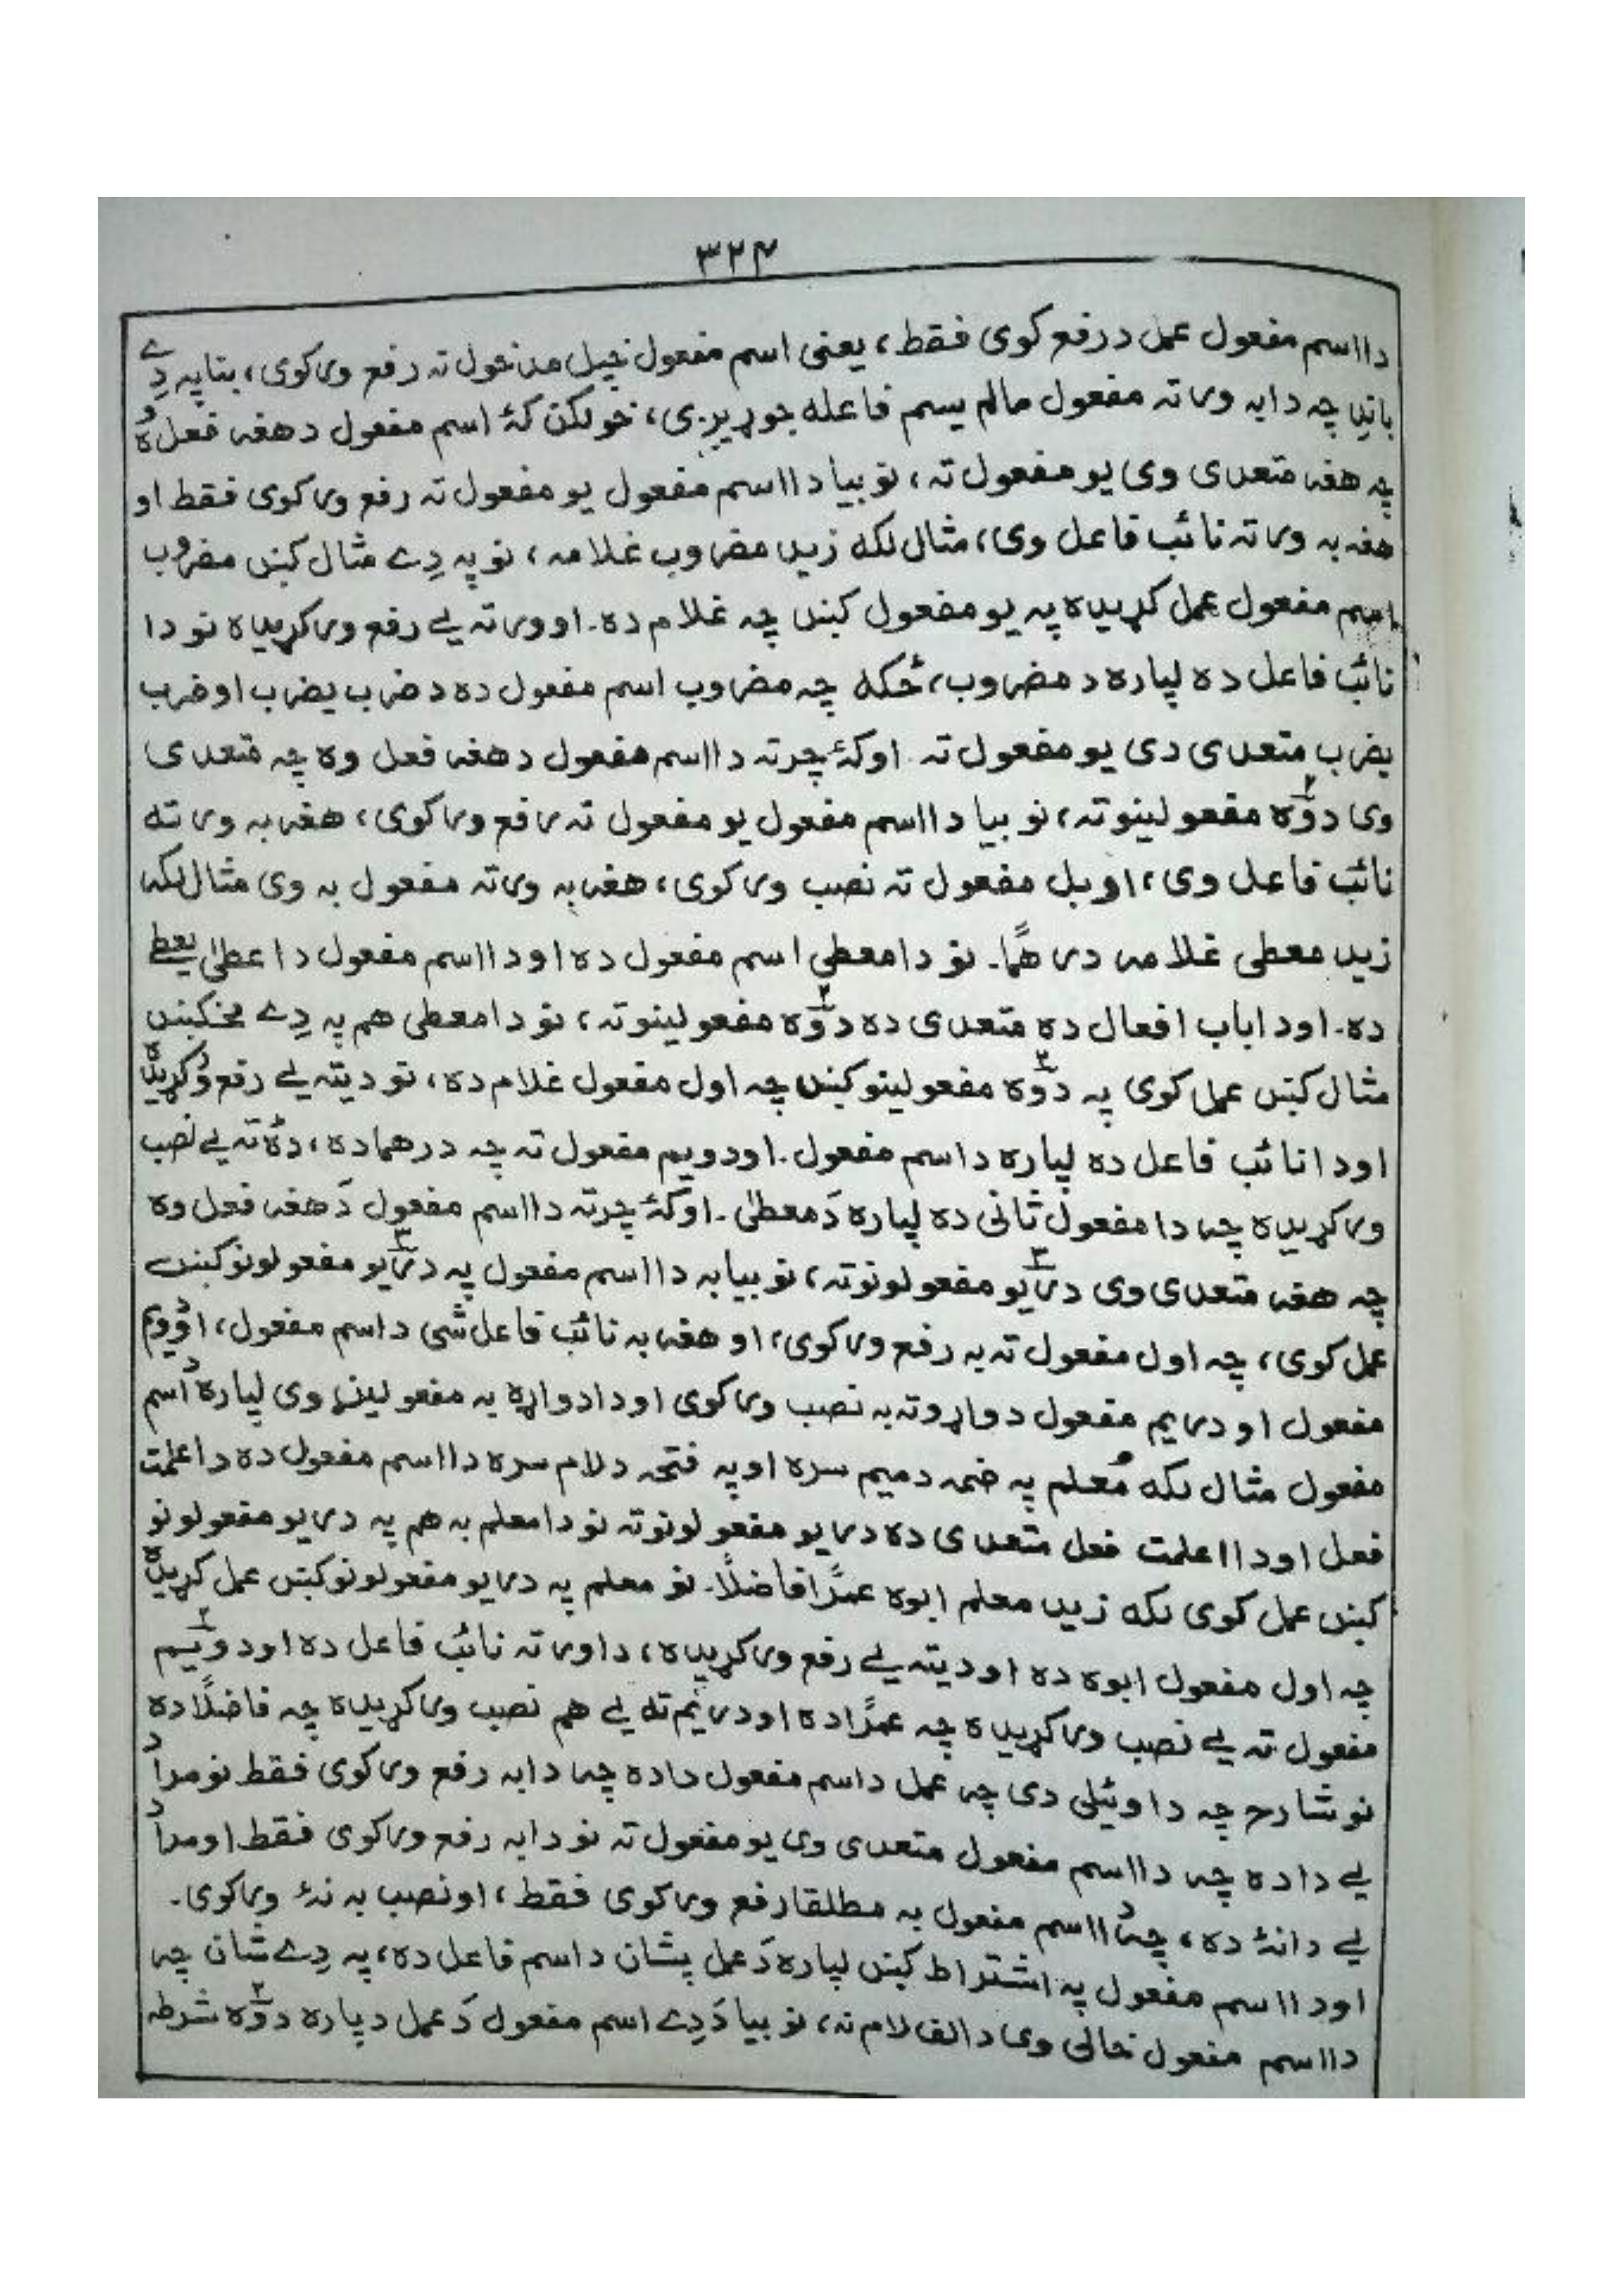 ۳۲۴
دا اسم مفعول عمل د رفع کوی فقط، یعنی اسم مفعول خپل مدخول ته رفع ورکوی، بنا په دِے
باندِ چه دا به ورته مفعول مالم یسم فاعله جوړیږی، خو لکن کهٔ اسم مفعول د هغه فعل وُہ
چه هغه متعدی وی یو مفعول ته، نو بیا دا اسم مفعول یو مفعول ته رفع ورکوی فقط او
هغه به ورته نائب فاعل وی، مثال لکه زید مضروب غلامه، نو په دِے مثال کښں مضروب
اسم مفعول عمل کړیدہ په یو مفعول کښں چه غلام دہ۔ او ورته یے رفع ورکړیدہ نو دا
نائب فاعل دہ لپارہ د مضروب، ځکه چه مضروب اسم مفعول دہ د ضرب یضرب او ضرب
یضرب متعدی دی یو مفعول ته۔ او کهٔ چرته دا اسم مفعول د هغه فعل وہ چه متعدی
وی دوّہ مفعولینو ته، نو بیا دا اسم مفعول یو مفعول ته رفع ورکوی، هغه به ورته
نائب فاعل وی، او بل مفعول ته نصب ورکوی، هغه به ورته مفعول به وی مثال لکه
زید معطی غلامه درهمًا۔ نو دا معطی اسم مفعول دہ او دا اسم مفعول د اعطیٰ یعطے
دہ۔ او دا باب افعال دہ متعدی دہ دوّہ مفعولینو ته، نو دا معطی هم په دِے مخکښں
مثال کښں عمل کوی په دوّہ مفعولینو کښں چه اول مفعول غلام دہ، نو دیته یے رفع ورکړیدہ
او دا نائب فاعل دہ لپارہ د اسم مفعول۔ او دویم مفعول ته چه درهما دہ، دہٗ ته یے نصب
ورکړیدہ چه دا مفعول ثانی دہ لپارہ دَ معطیٰ۔ او کهٔ چرته دا اسم مفعول دَ هغه فعل وہ
چه هغه متعدی وی دریو مفعولونو ته، نو بیا به دا اسم مفعول په دریو مفعولونو کښں
عمل کوی، چه اول مفعول ته به رفع ورکوی، او هغه به نائب فاعل شی د اسم مفعول، او دویم
مفعول او دریم مفعول دواړو ته به نصب ورکوی او دا دواړہ به مفعولین وی لپارہ د اسم
مفعول مثال لکه مُعلم په ضمه د میم سرہ او په فتحه د لام سرہ دا اسم مفعول دہ د اعلمت
فعل او دا اعلمت فعل متعدی دہ دریو مفعولونو ته نو دا معلم به هم په دریو مفعولونو
کښں عمل کوی لکه زید معلم ابوہ عمرًا فاضلًا۔ نو معلم په دریو مفعولونو کښں عمل کړیدہ
چه اول مفعول ابوہ دہ او دیته یے رفع ورکړیدہ، دا ورته نائب فاعل دہ او دویم
مفعول ته یے نصب ورکړیدہ چه عمرًا دہ او دریم ته یے هم نصب ورکړیدہ چه فاضلًا دہ
نو شارح چه دا وئیلی دی چه عمل د اسم مفعول دا دہ چه دا به رفع ورکوی فقط نو مراد
یے دا دہ چه دا اسم مفعول متعدی وی یو مفعول ته نو دا به رفع ورکوی فقط او مراد
یے دا نهٔ دہ، چه دا اسم مفعول به مطلقا رفع ورکوی فقط، او نصب به نهٔ ورکوی۔
او دا اسم مفعول په اشتراط کښں لپارہ دَ عمل پشان د اسم فاعل دہ، په دِے شان چه
دا اسم مفعول خالی وی د الف لام نه، نو بیا دَ دِے اسم مفعول دَ عمل دپارہ دوّہ شرطه